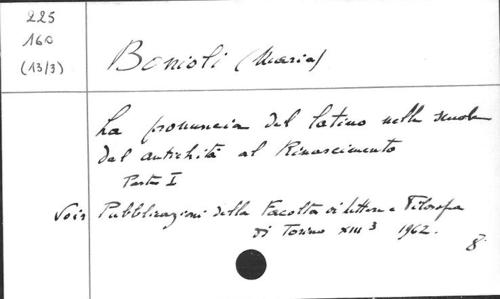 225
160
(13/3)
Bonioli (Maria)
La pronuncia del latino nelle scuole
dal antichità al Rinascimento
Parte I
Voir Pubblicazioni della Facoltà di lettere e Filosofia
di Torino XIII 3 1962.
8°